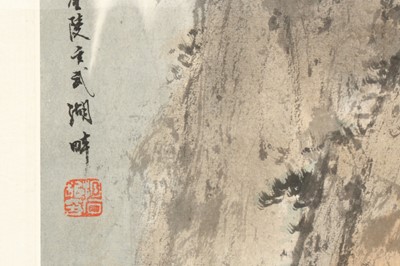 金陵玄武湖畔